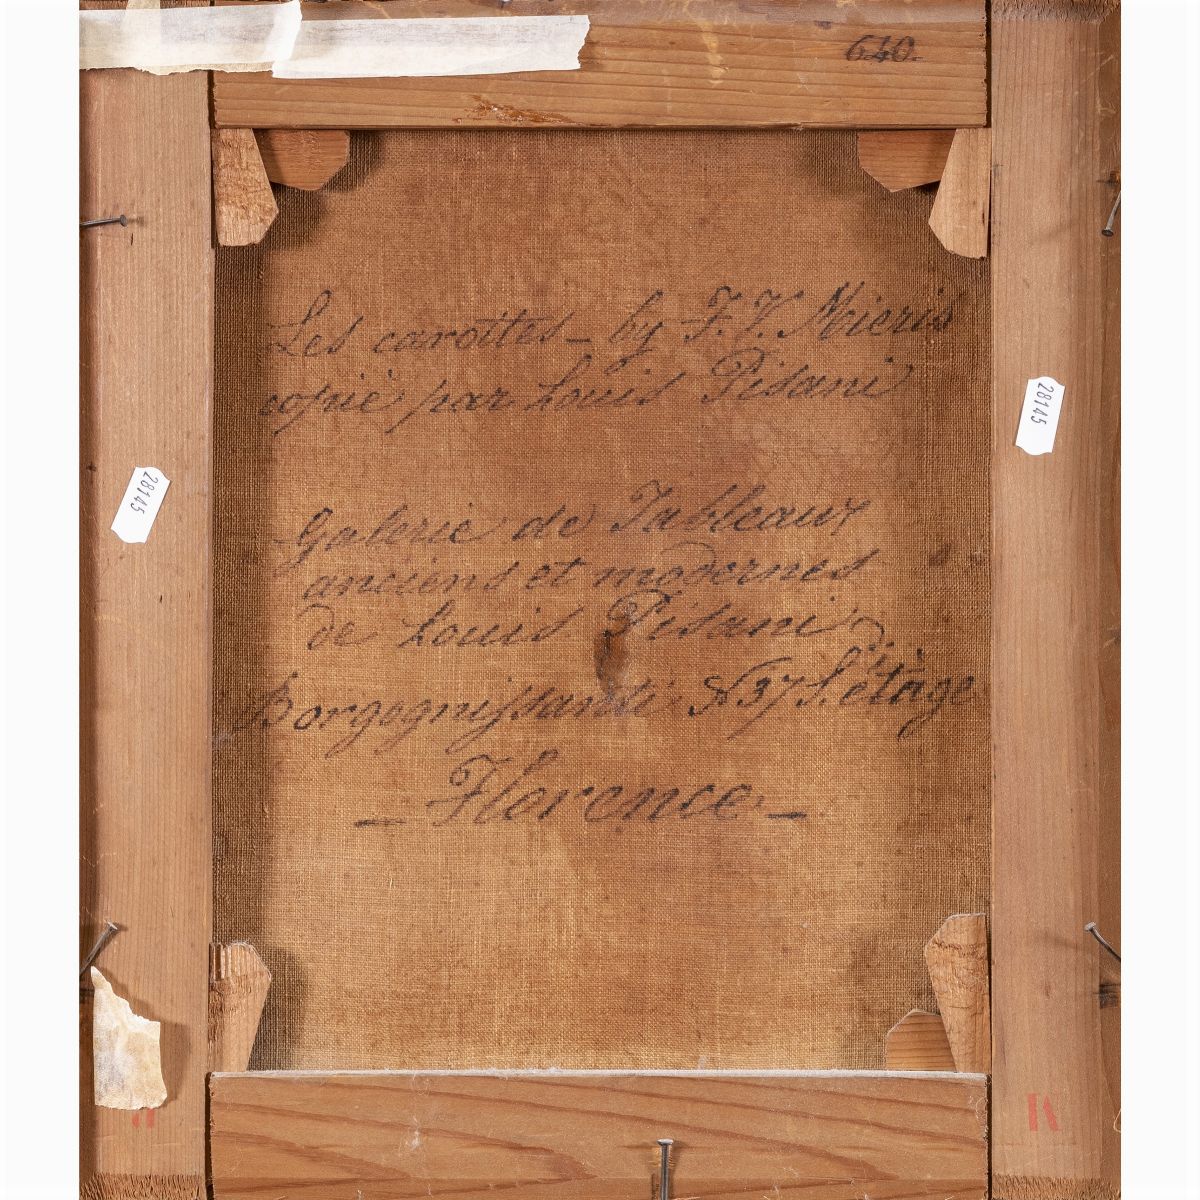 640.
Les carottes - by F. V. Mieris
copié par Louis Pisani
28145
28145
Galerie de Tableaux
anciens et modernes
de Louis Pisani
Borgognissanti N 37 étage
- Florence -